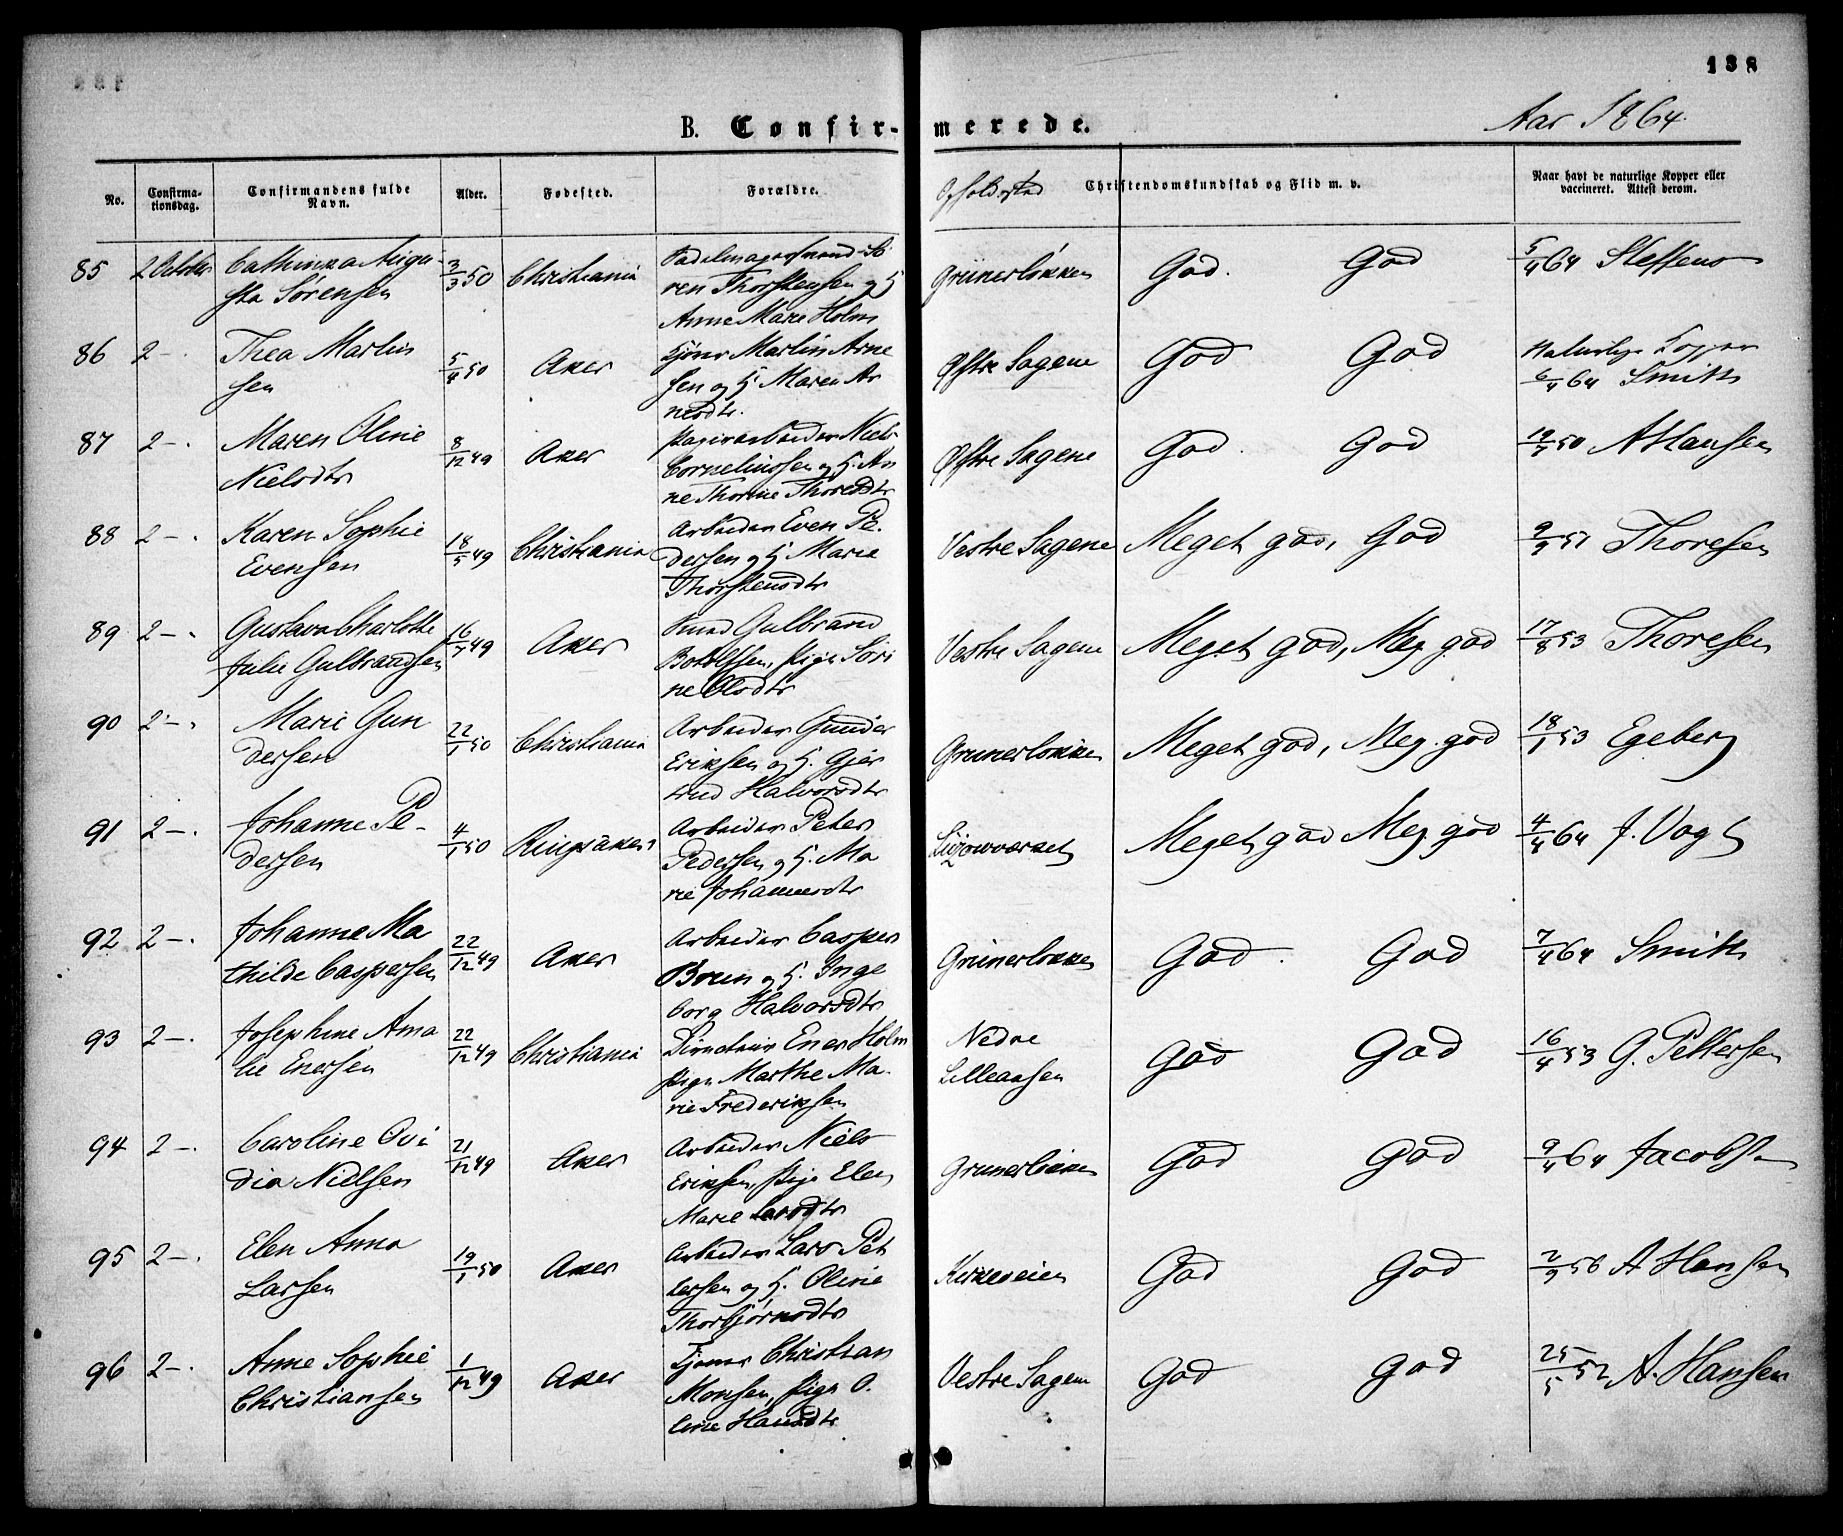 138
B. Confir- merede. Aar 1864.
No. Confirma- Confirmandens fulde Alder. Fødested. Forældre. Opholdssted Christendomskundskab og Flid m. v. Naar havt de naturlige Kopper eller
tionsdag. Navn. vaccineret. Attest derom.
85 2 October Cathinka Augu- 3/3 50 Christiania Sø
sta Sørensen ren Thorstensen og H Grünerløkken God. God 5/4 64 Steffens
Anne Marie Holm
86 2 -. Thea Martin 5/4 50 Aker Tjener Martin Arne Østre Sagene God God Naturlige Kopper
sen sen og H. Maren Ar 6/4 64 Smith
nesdtr.
87 2 -. Maren Oline 8/12 49 Aker Papirarbeider Niels Østre Sagene God. God 50 A Hansen
Nielsdtr Corneliussen og H. An
ne Thorine Thoresdtr
88 2 -. Karen Sophie 18/5 49 Christiania Arbeider Even Pe- Vestre Sagene Meget god, God 9/9 51 Thoresen
Evensen dersen og H Marie
Thorstensdtr
89 2 -. Gustava Charlotte 16/7 49 Aker Gulbrand Vestre Sagene Meget god, Meg. god 17/8 53 Thoresen
Julie Gulbrandsen Pige Søri
ne Olsdtr
90 2 -. Marie Gun 22/1 50 Christiania Arbeider Gunder Grünerløkken Meget god, Meg. god 18/1 53 Egeberg
dersen Eriksen og H. Gjer
trud Halvorsdtr
91 2 -. Johanne Pe- 4/1 50 Ringsaker Arbeider Peter Meget god Meg. god 4/4 64 J. Vogt
dersen Pedersen og H. Ma
rie Johannesdtr
92 2 -. Johanne Ma 22/12 49 Aker Arbeider Casper Grünerløkken God. God 7/4 64 Smith
thilde Caspersen Broen og H. Inge
borg Halvorsdtr
93 2 -. Josephine Ama 22/12 49 Christiania Directeur Ener Holm Nedre God God 16/4 53 G. Pettersen
lie Enersen Pige Marthe Ma- Lilleaasen
rie Frederiksen
94 2 -. Caroline Ovi 21/12 49 Aker Arbeider Niels Grünerløkken God God 9/4 64 Jacobsen
dia Nielsen Eriksen, Pige Elen
Marie Larsdtr
95 2 -. Elen Anna 19/1 50 Aker Arbeider Lars Pet Kirkeveien God God 2/9 56 A Hansen
Larsen tersen og H. Oline
Thorbjørnsdtr
96 2 -. Anne Sophie 1/12 49 Aker Tjener Christian Vestre Sagene God God 25/5 52 A. Hansen
Christiansen Monsen, Pige O.
line Hansdtr